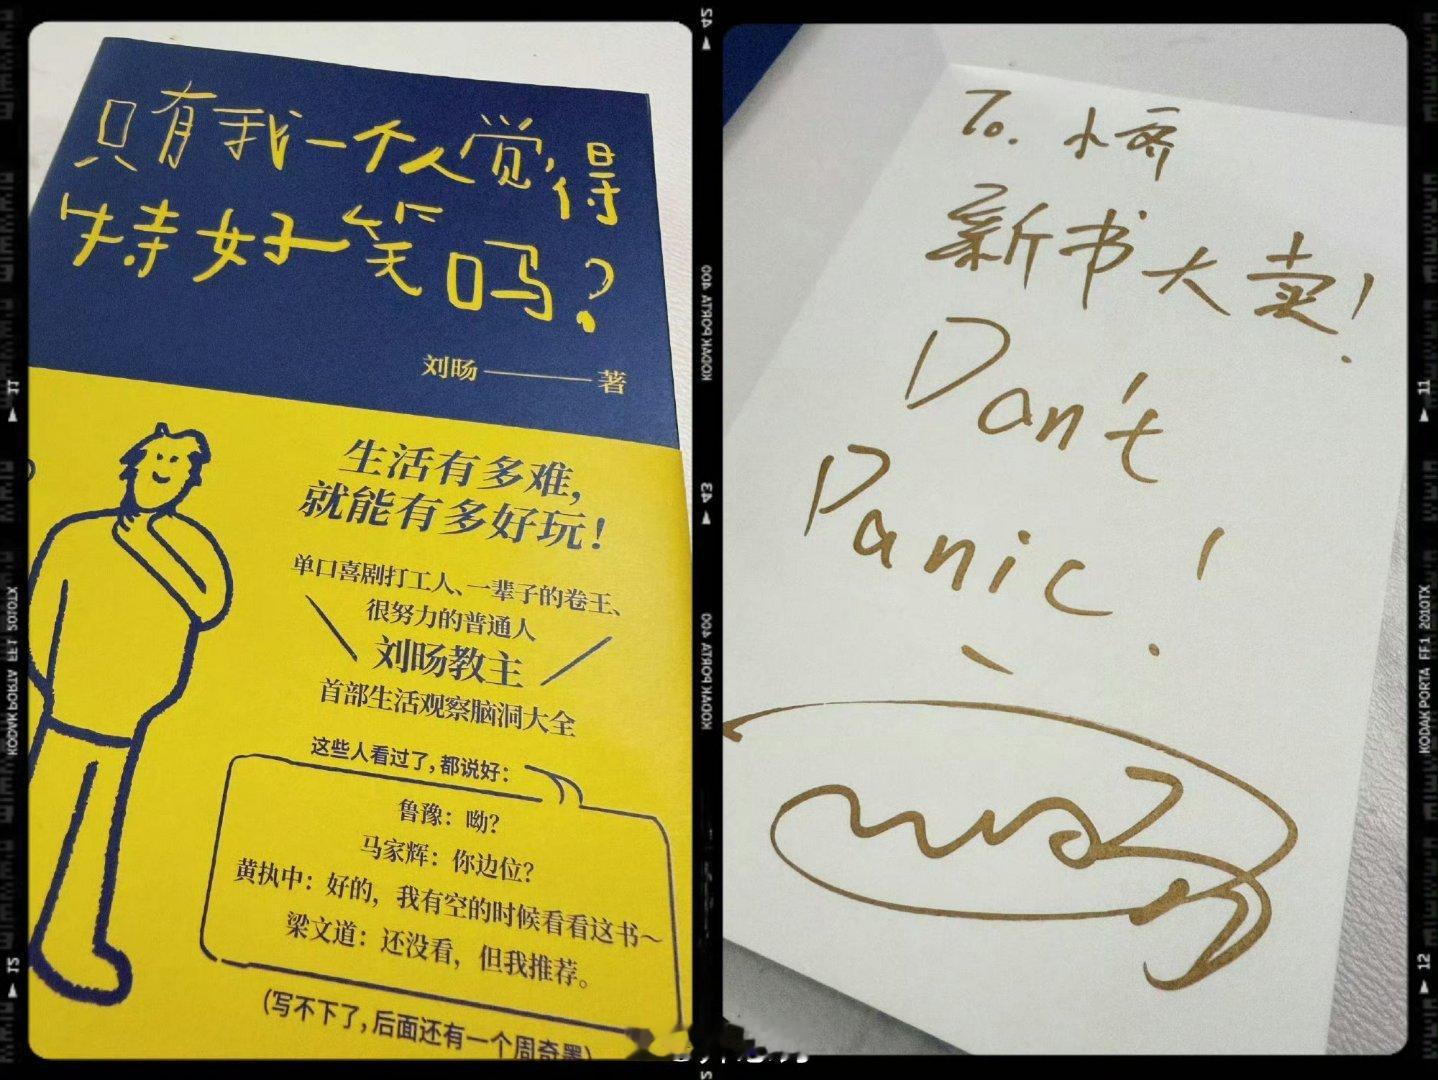 只有我一个人觉得
特好笑吗?
刘旸——著
生活有多难，
就能有多好玩！
单口喜剧打工人、一辈子的卷王、
很努力的普通人
刘旸教主
首部生活观察脑洞大全
这些人看过了，都说好：
鲁豫：呦？
马家辉：你边位？
黄执中：好的，我有空的时候看看这书～
梁文道：还没看，但我推荐。
(写不下了，后面还有一个周奇墨)
To. 小齐
新书大卖！
Don't
Panic！
11
12
KODAK PORTA 400
43
KODAK PORTA 400
11
KODAK PORTA FF1 2010TX
12